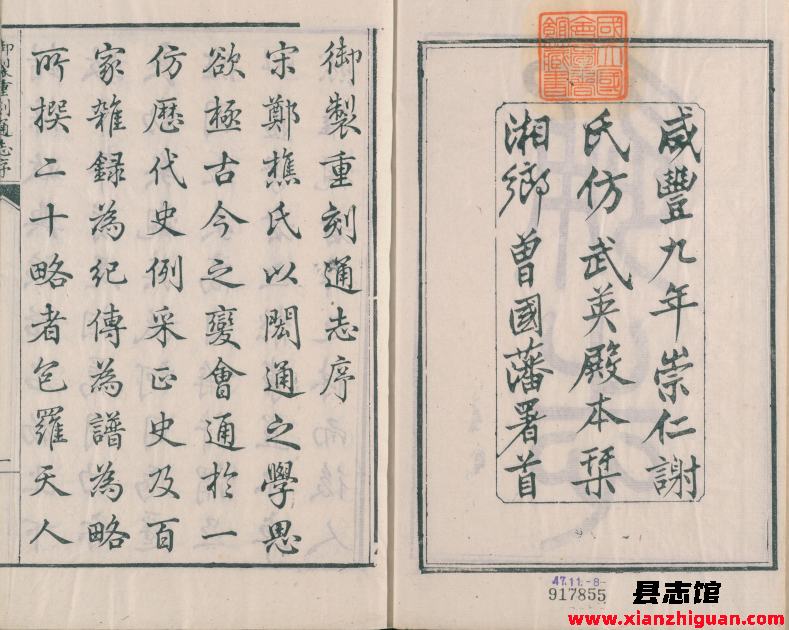 咸豐九年崇仁謝
氏仿武英殿本栞
湘鄉曾國藩署首
國立國
會圖書
館藏書
47.11.-8-
917855
县志馆
www.xianzhiguan.com
御製重刻通志序
宋鄭樵氏以閎通之學思
欲極古今之變會通於一
仿歷代史例采正史及百
家雜録為紀傳為譜為略
所撰二十略者包羅天人